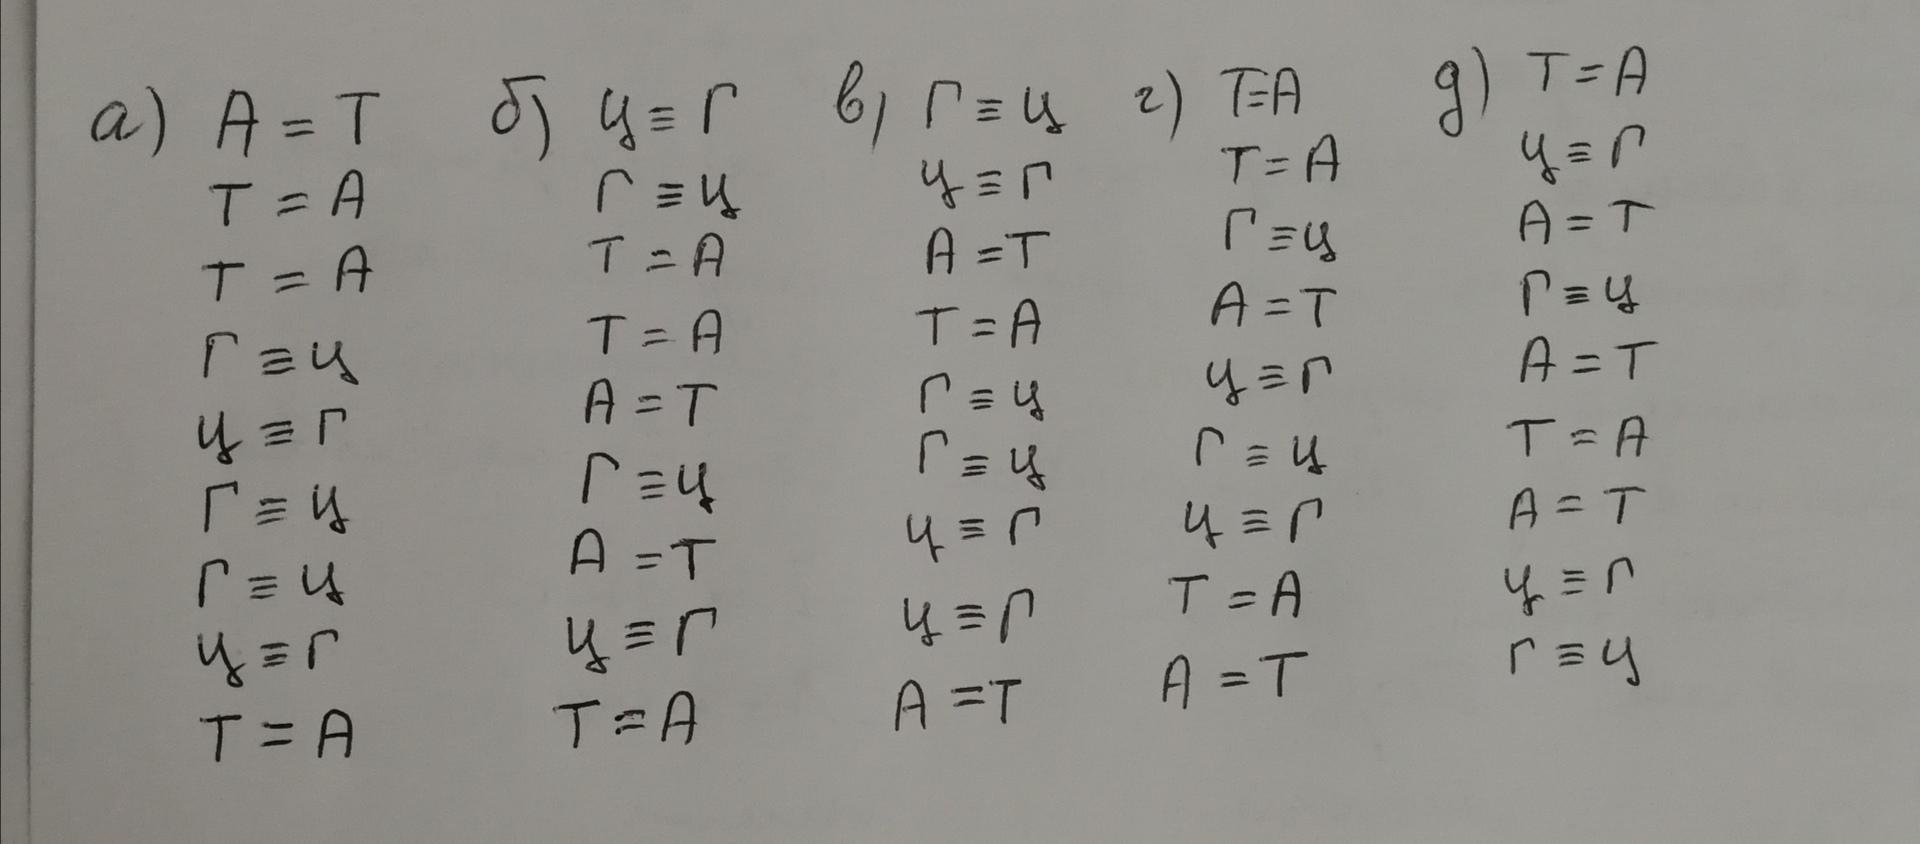 а) А = Т
Т = А
Т = А
Г ≡ Ц
Ц ≡ Г
Г ≡ Ц
Г ≡ Ц
Ц ≡ Г
Т = А
б) Ц ≡ Г
Г ≡ Ц
Т = А
Т = А
А = Т
Г ≡ Ц
А = Т
Ц ≡ Г
Т = А
в) Г ≡ Ц
Ц ≡ Г
А = Т
Т = А
Г ≡ Ц
Г ≡ Ц
Ц ≡ Г
Ц ≡ Г
А = Т
г) Т = А
Т = А
Г ≡ Ц
А = Т
Ц ≡ Г
Г ≡ Ц
Ц ≡ Г
Т = А
А = Т
д) Т = А
Ц ≡ Г
А = Т
Г ≡ Ц
А = Т
Т = А
А = Т
Ц ≡ Г
Г ≡ Ц